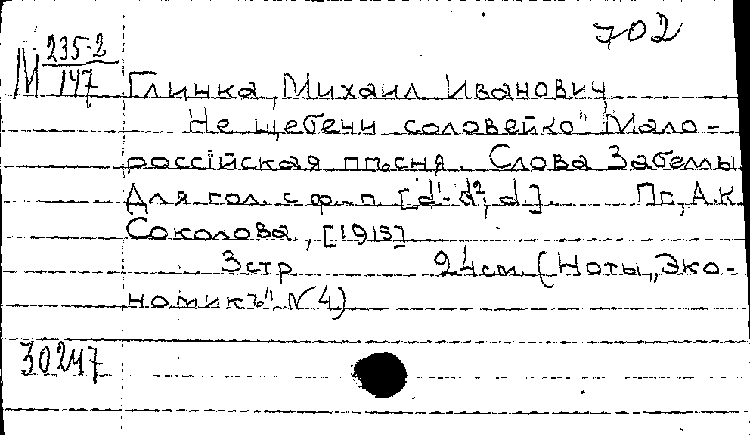 702
М 235-2
147
Глинка, Михаил Иванович
Не щебечи соловейко" Мало-
россійская пѣсня. Слова Забеллы
Для гол. с ф.-п. [d'-d², d]. Пг, А.К.
Соколова, [1915]
3стр 24см. (Ноты „Эко-
номикъ" N4)
30247